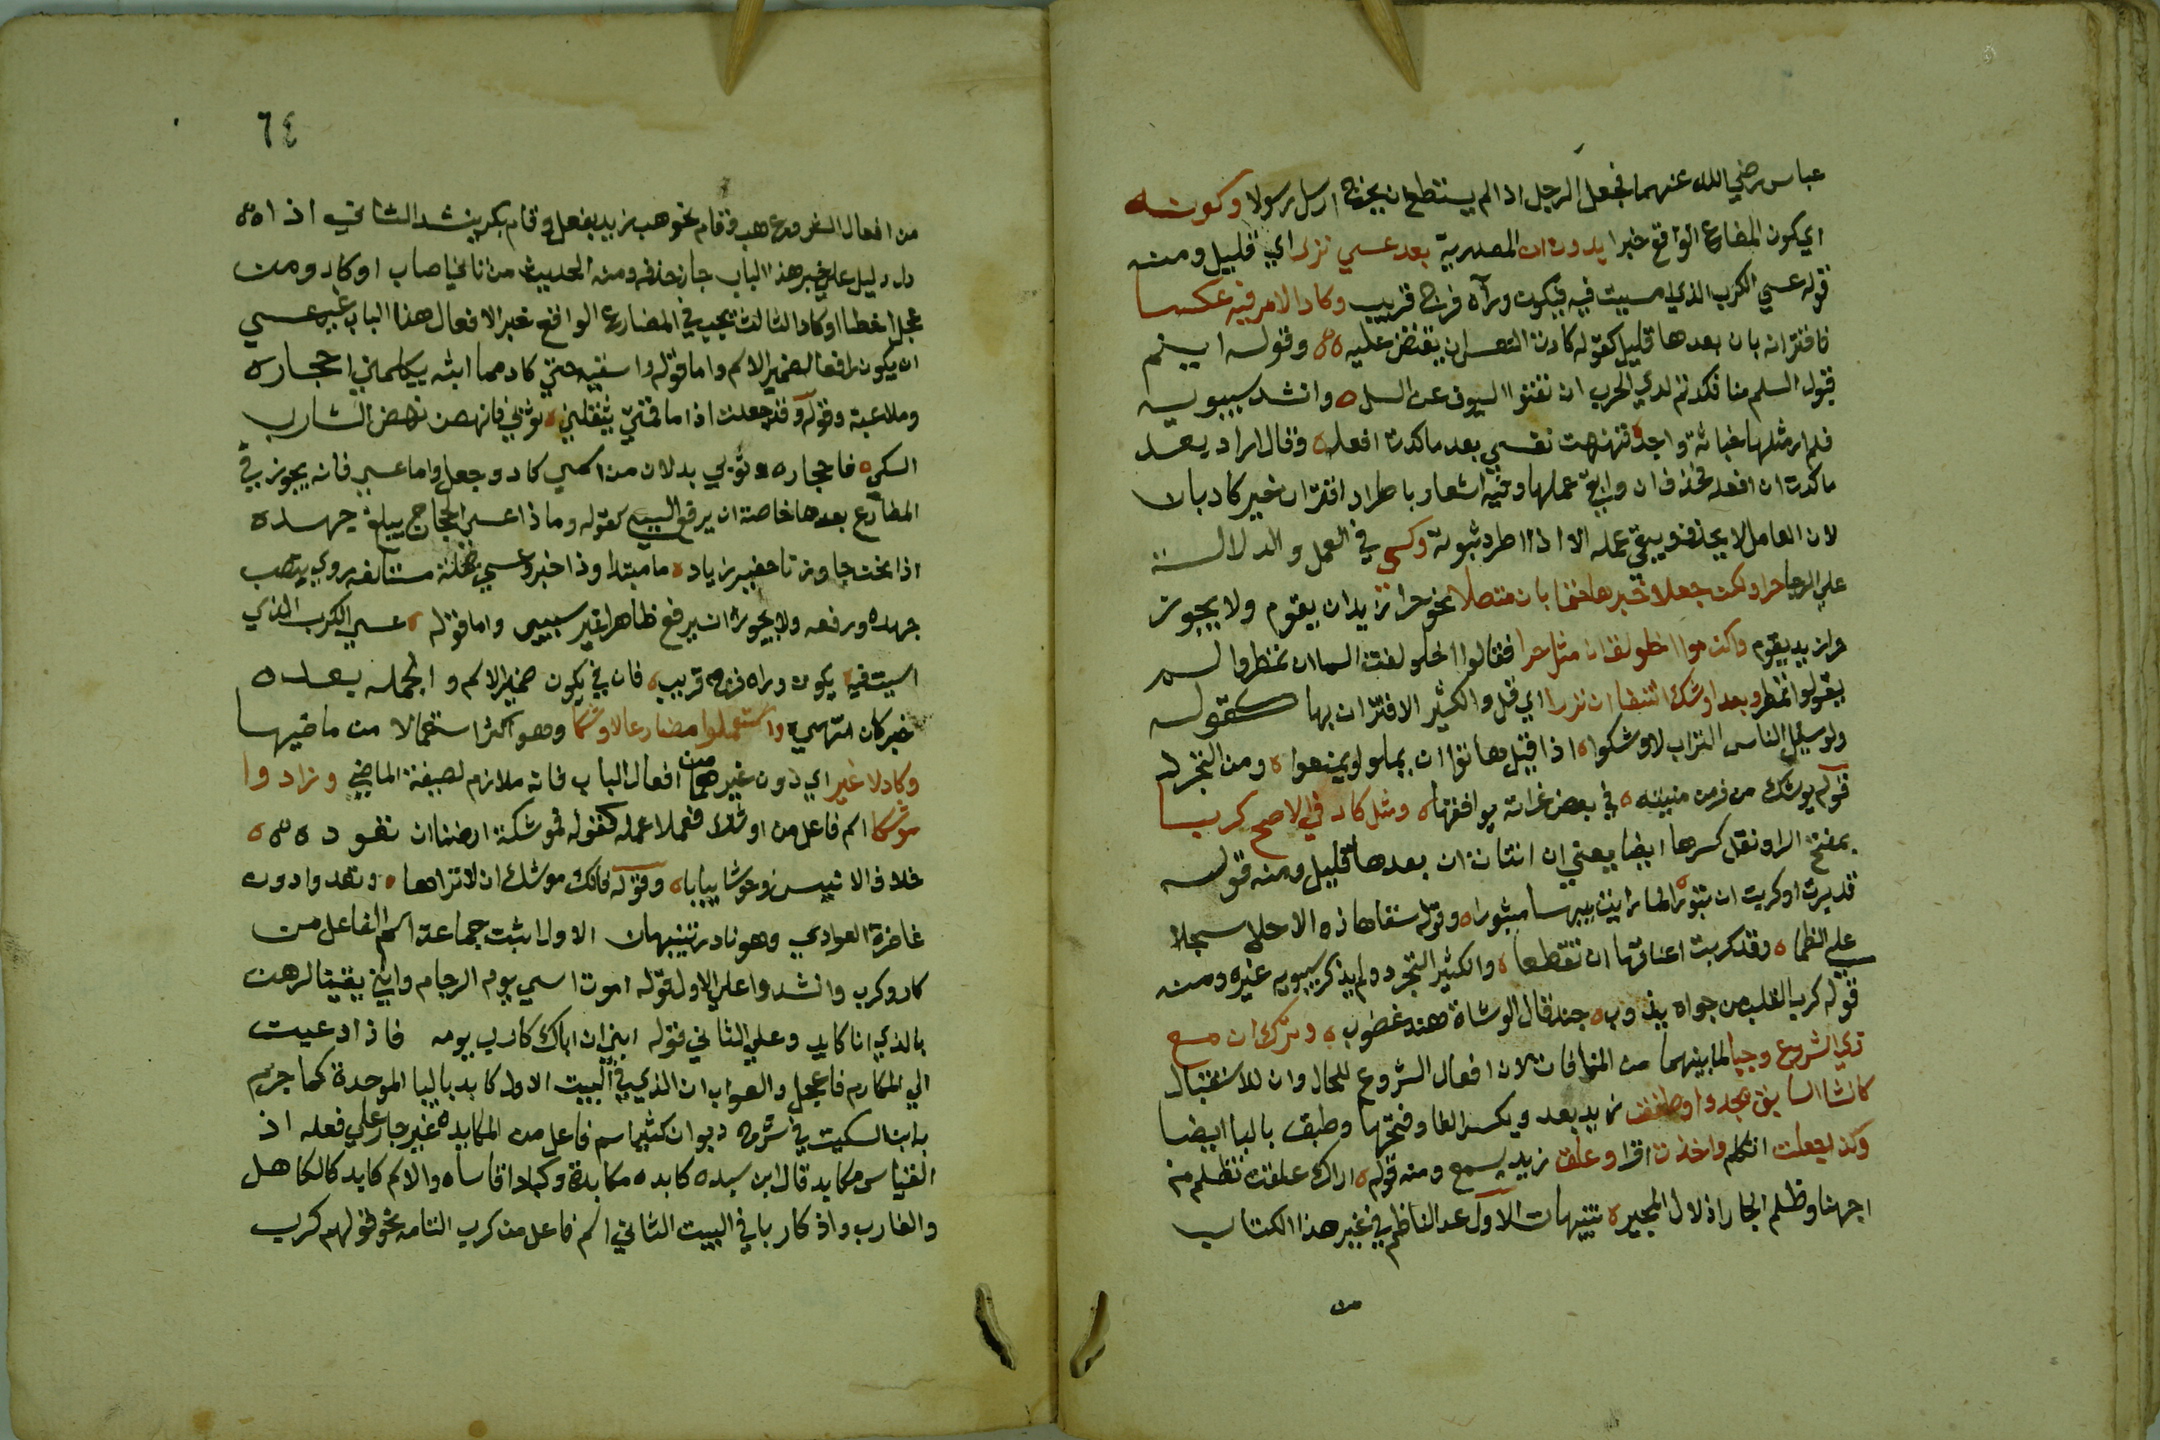 عباس رضي الله عنهما فجعل الرجل اذا لم يستطع ان يخرج ارسل رسولا وكونه
اي كون المضارع الواقع خبرا بدون ان المصدرية بعد عسي نزر اي قليل ومنه
قوله عسي الكرب الذي امسيت فيه يكون وراه فرج قريب وكاد الامر فيه عكسا
فاقترانه بان بعدها قليل كقوله كادت النفس ان تفيض عليه وقوله ابيتم
قبول السلم منا فكدتم لدي الحرب ان تغنوا السيوف عن السل وانشد سيبويه
فلم ار مثلها خباثة واجد فنهنهت نفسي بعد ما كدت افعله وقال اراد بعد
ما كدت ان افعله فحذف ان وابقي عملها وفيه اشعار باطراد اقتران خبر كاد بان
لان العامل لا يحذف ويبقي عمله الا اذا اطرد ثبوته وكعسي في العمل والدلالة
علي الرجا حرا ولكن جعلا خبرها حتما بان متصلا نحو حرا زيد ان يقوم ولا يجوز
حرا زيد يقوم والزموا اخلولق ان مثل حرا فقالوا اخلولقت السما ان تمطر ولم
يقولوا تمطر وبعد اوشك انتفا ان نزرا اي قل والكثير الاقتران بها كقوله
ولو سئل الناس التراب لاوشكوا اذا قيل هاتوا ان يملوا ويمنعوا ومن التجرد
قوله يوشك من فر من منيته في بعض غراته يوافقها ومثل كاد في الاصح كربا
بفتح الرا ونقل كسرها ايضا يعني ان اثبات ان بعدها قليل ومنه قوله
قد برت او كربت ان تبورا لما رايت بيهسا مثبورا وقوله سقاها ذوو الاحلام سجلا
علي الظما وقد كربت اعناقها ان تقطعا والكثير التجرد ولم يذكر سيبويه غيره ومنه
قوله كرب القلب من جواه يذوب حين قال الوشاة هند غضوب وترك ان مع
ذي الشروع وجبا لما بينهما من المنافات لان افعال الشروع للحال وان للاستقبال
كانشا السايق يحدوا وطفق زيد يعد ويكسر الفا وفتحها وطبق بالبا ايضا
وكذا جعلت اتكلم واخذت اقرا وعلق زيد يسمع ومنه قوله اراك علقت تظلم من
اجرنا وظلم الجار اذلال المجير تنبيهات الاول عد الناظم في غير هذا الكتاب
من
٦٤
من افعال الشروع هب وقام نحو هب زيد يفعل وقام بكر ينشد الثاني اذا
دل دليل علي خبر هذا الباب جاز حذفه ومنه الحديث من تاني اصاب او كاد ومن
عجل اخطا او كاد الثالث يجب في المضارع الواقع خبرا لافعال هذا الباب غير عسي
ان يكون رافعا لضمير الاسم واما قوله واسقيه حتي كاد مما ابثه تكلمني احجاره
وملاعبه وقوله وقد جعلت اذا ما قمت يثقلني ثوبي فانهض نهض الشارب
السكر فاحجاره وثوبي بدلان من اسمي كاد وجعل واما عسي فانه يجوز في
المضارع بعدها خاصة ان يرفع السببي كقوله وماذا عسي الحجاج يبلغ جهده
اذا نحن جاوزنا حفير زياد ما مبتدا وذا خبر وعسي جملة مستانفه روي بنصب
جهده ورفعه ولا يجوز ان يرفع ظاهرا غير سببي واما قوله عسي الكرب الذي
امسيت فيه يكون وراه فرج قريب فان في يكون ضمير الاسم والجمله بعده
خبر كان انتهي واستعملوا مضارعا لاوشكا وهو اكثر استعمالا من ماضيها
وكاد لا غير اي دون غيرهما من افعال الباب فانه ملازم لصيغة الماضي وزادوا
موشكا اسم فاعل من اوشك فعملا عمله كقوله فموشكة ارضنا ان تعود
خلاف الانيس وحوشا يبابا وقوله فانك موشك ان لا تراها وتعدوا دون
غاضرة العوادي وهو نادر تنبيهان الاول اثبت جماعة اسم الفاعل من
كاد وكرب وانشدوا علي الاول قوله اموت اسي يوم الرجام وانني يقينا لرهن
بالذي انا كايد وعلي الثاني قوله ابني ان اباك كارب يومه فاذا دعيت
الي المكارم فاعجل والصواب ان الذي في البيت الاول كابد بالبا الموحدة كما جزم
به ابن السكيت في شرح ديوان كثير اسم فاعل من المكابده غير جار علي فعله اذ
القياس مكابد قال ابن سيده كابده مكابدة وكبادا قاساه والاسم كابد كالكاهل
والغارب واذ كاربا في البيت الثاني اسم فاعل من كرب التامه نحو قولهم كرب